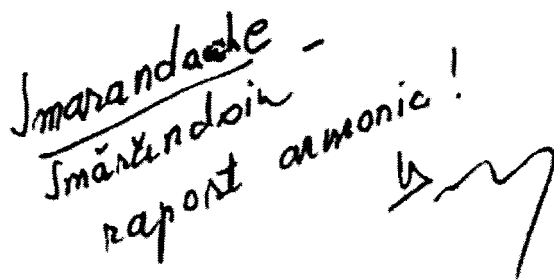 Smarandache -
Smărăndoiu
raport armonic!